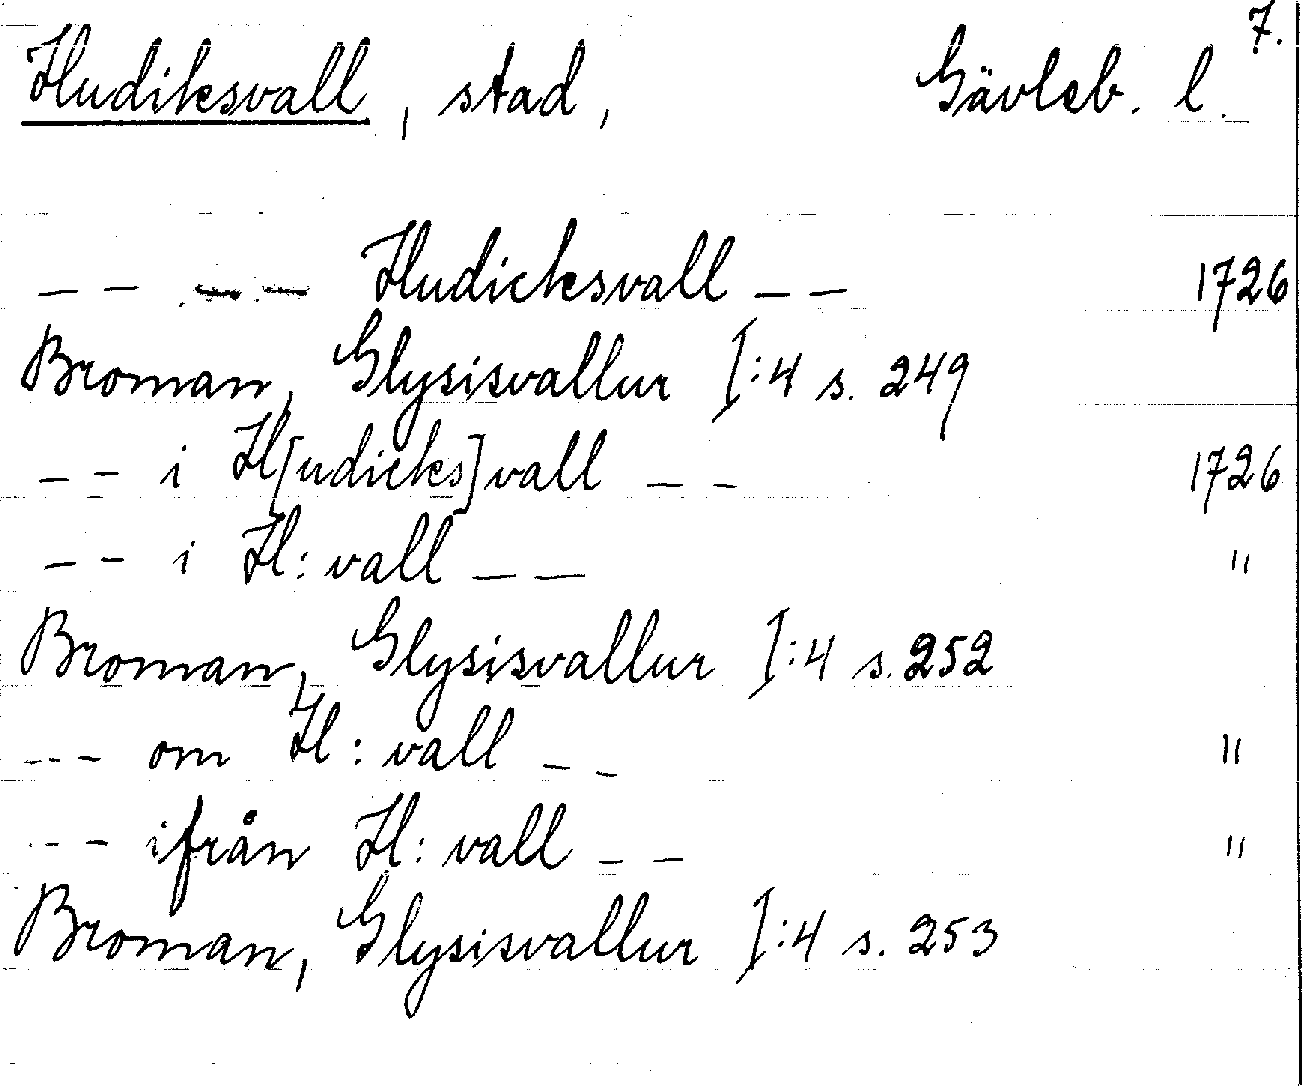 7.
Hudiksvall, stad, Gävleb. l.
-- -- Hudicksvall -- 1726
Broman, Glysisvallur I:4 s. 249
-- i H[udicks]vall -- 1726
-- i H:vall -- "
Broman, Glysisvallur I:4 s. 252
--- om H:vall -- "
-- ifrån H:vall -- "
Broman, Glysisvallur I:4 s. 253